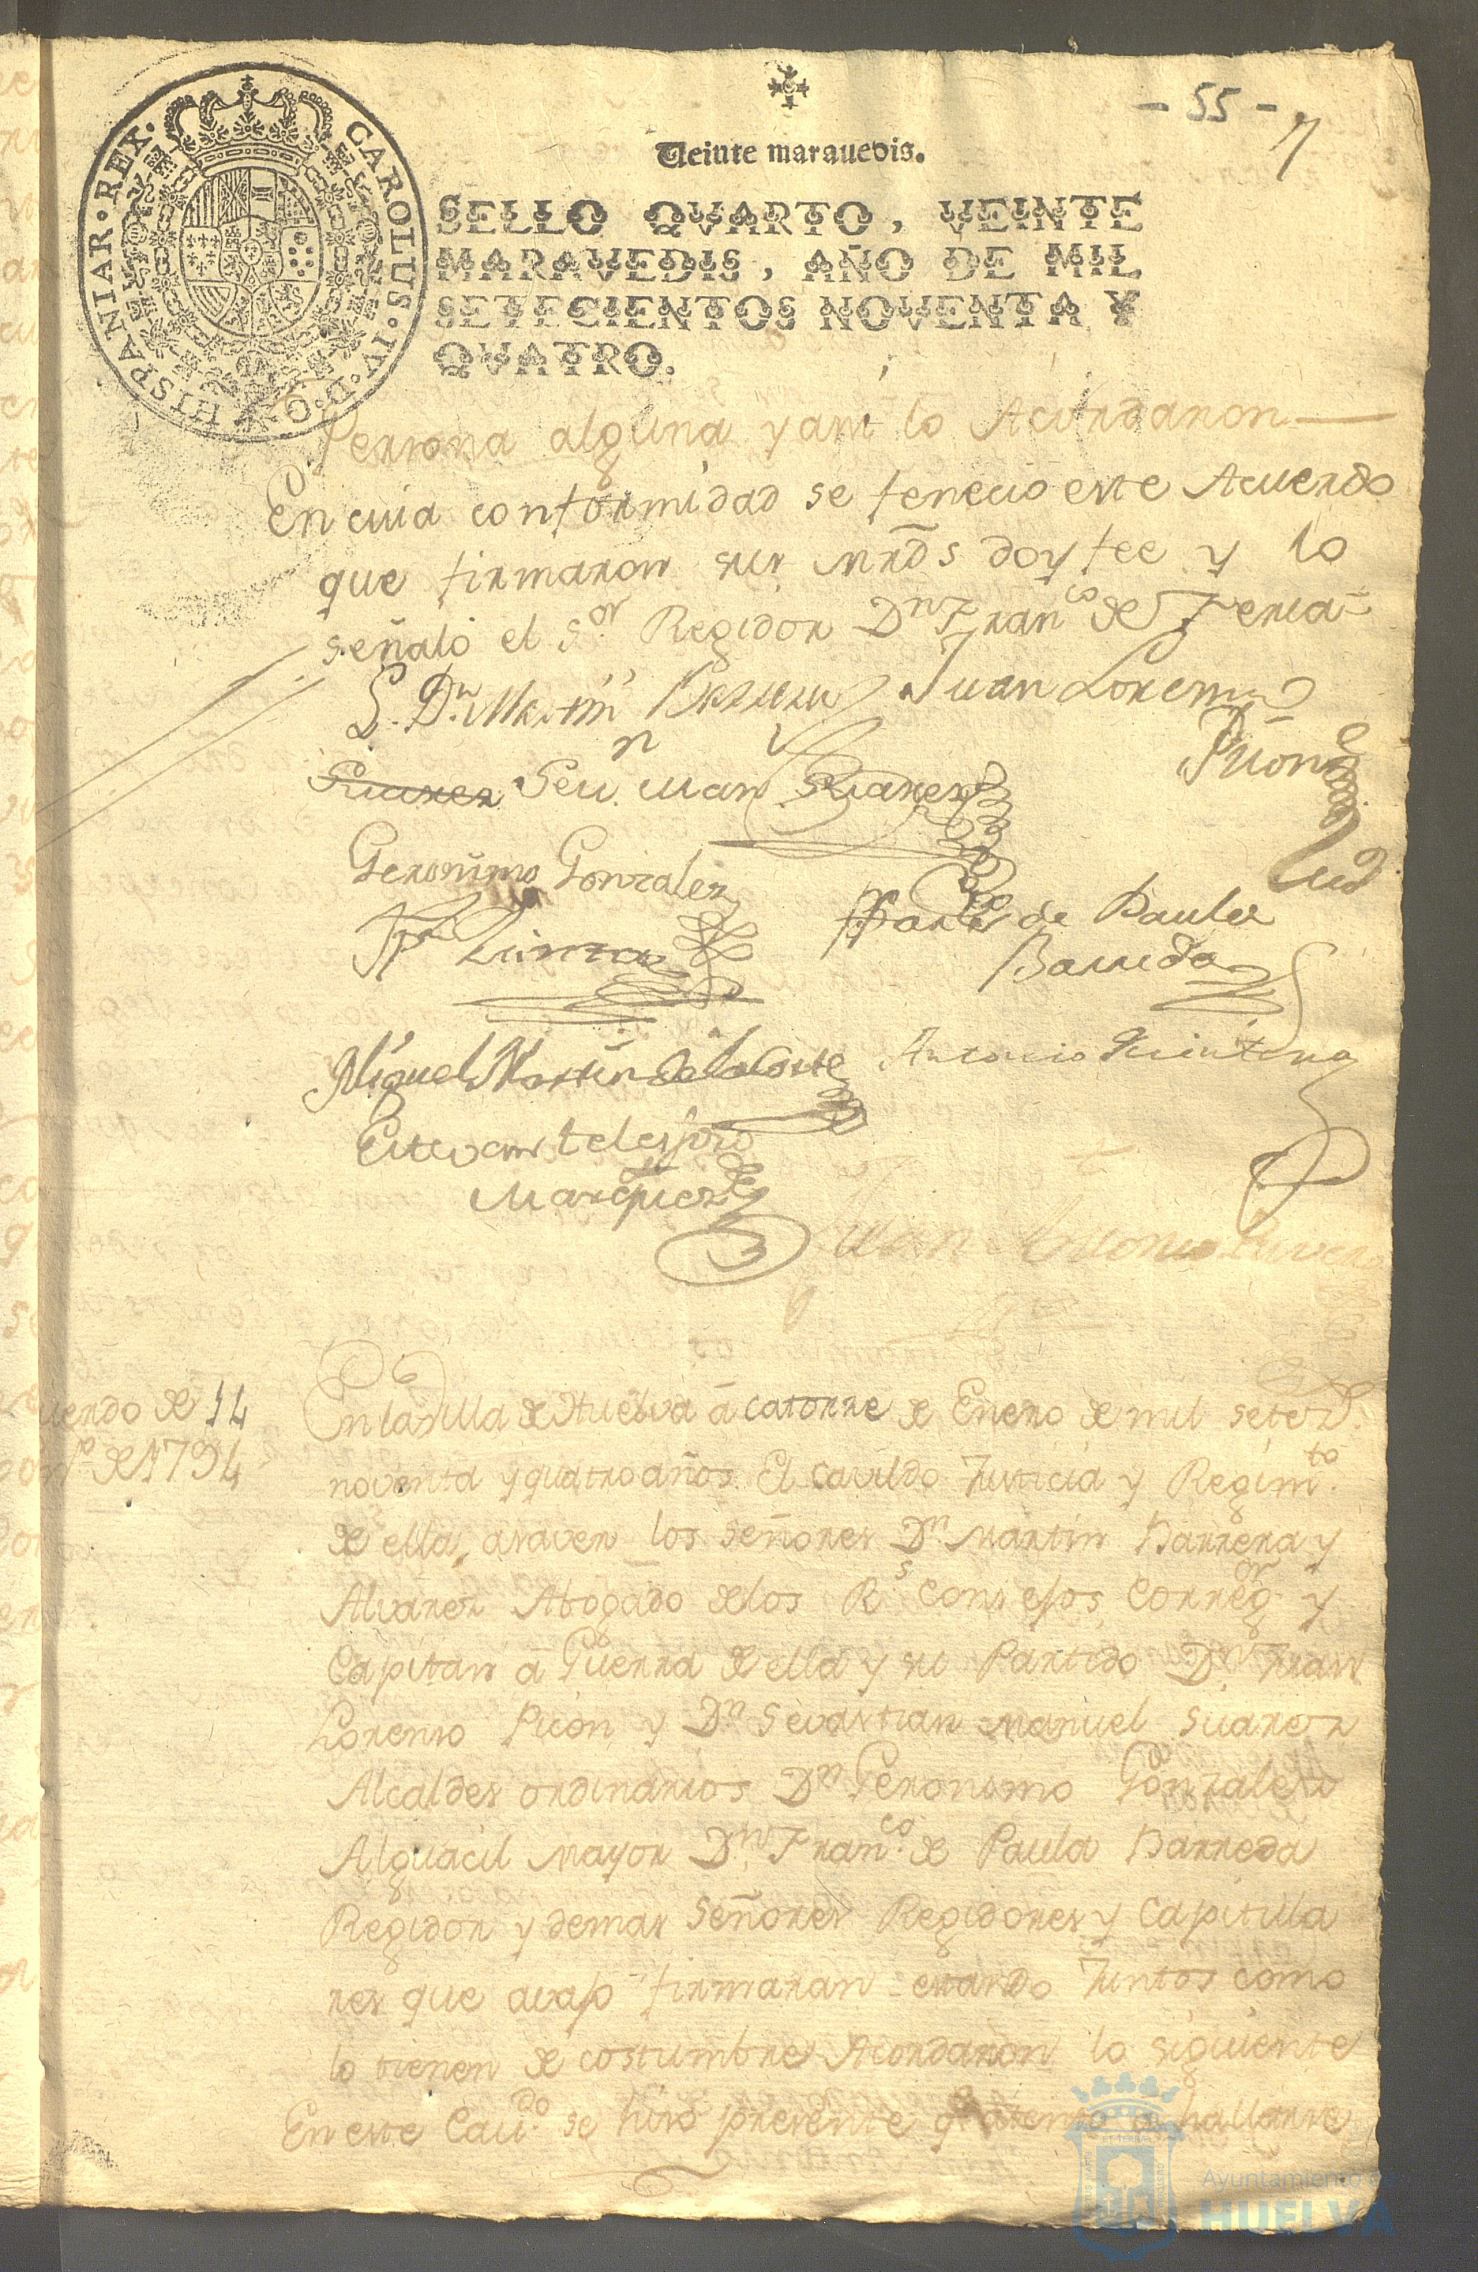 - 55 -
7
Veinte marauedis.
CAROLUS · IV · D · G · HISPANIAR · REX ·
SELLO QVARTO, VEINTE
MARAVEDIS, AÑO DE MIL
SETECIENTOS NOVENTA Y
QVATRO.
Persona alguna y asi lo Acordaron
En cuia conformidad se fenecio este Acuerdo
que firmaron sus mrds doy fee y lo
señaló el s.or Regidor Dn Franco de
L. Dn Martin Barrera Juan Lorenzo
Picon
Suarez Sevn Man Suarez
Geronimo Gonzalez
Franco de Paula
Barreda
Miguel Martin de la Corte Antonio Quintero
Estevan telesforo
Marquez
Juan Antonio Rivera
uerdo de 14
de 1794
En la Villa de Huelva á catorze de Enero de mil setez.s
noventa y quatro años El cavildo Justicia y Regim.to
de ella, asaver los señores Dn Martin Barrera y
Alvarez Abogado de los R.s Consejos, Correg.or y
Capitan á Guerra de ella y su Partido Dn Juan
Lorenso Picon, y Dn Sevastian Manuel Suarez
Alcaldes ordinarios Dn Geronimo Gonzalez
Alguacil mayor Dn Fran.co de Paula Barreda
Regidor y demas señores Regidores y Capitula
res que avajo firmaran estando Juntos como
lo tienen de costumbre Acordaron lo siguiente
En este Cav.do se hiso presente q atento a hallarse
Ayuntamiento de
HUELVA